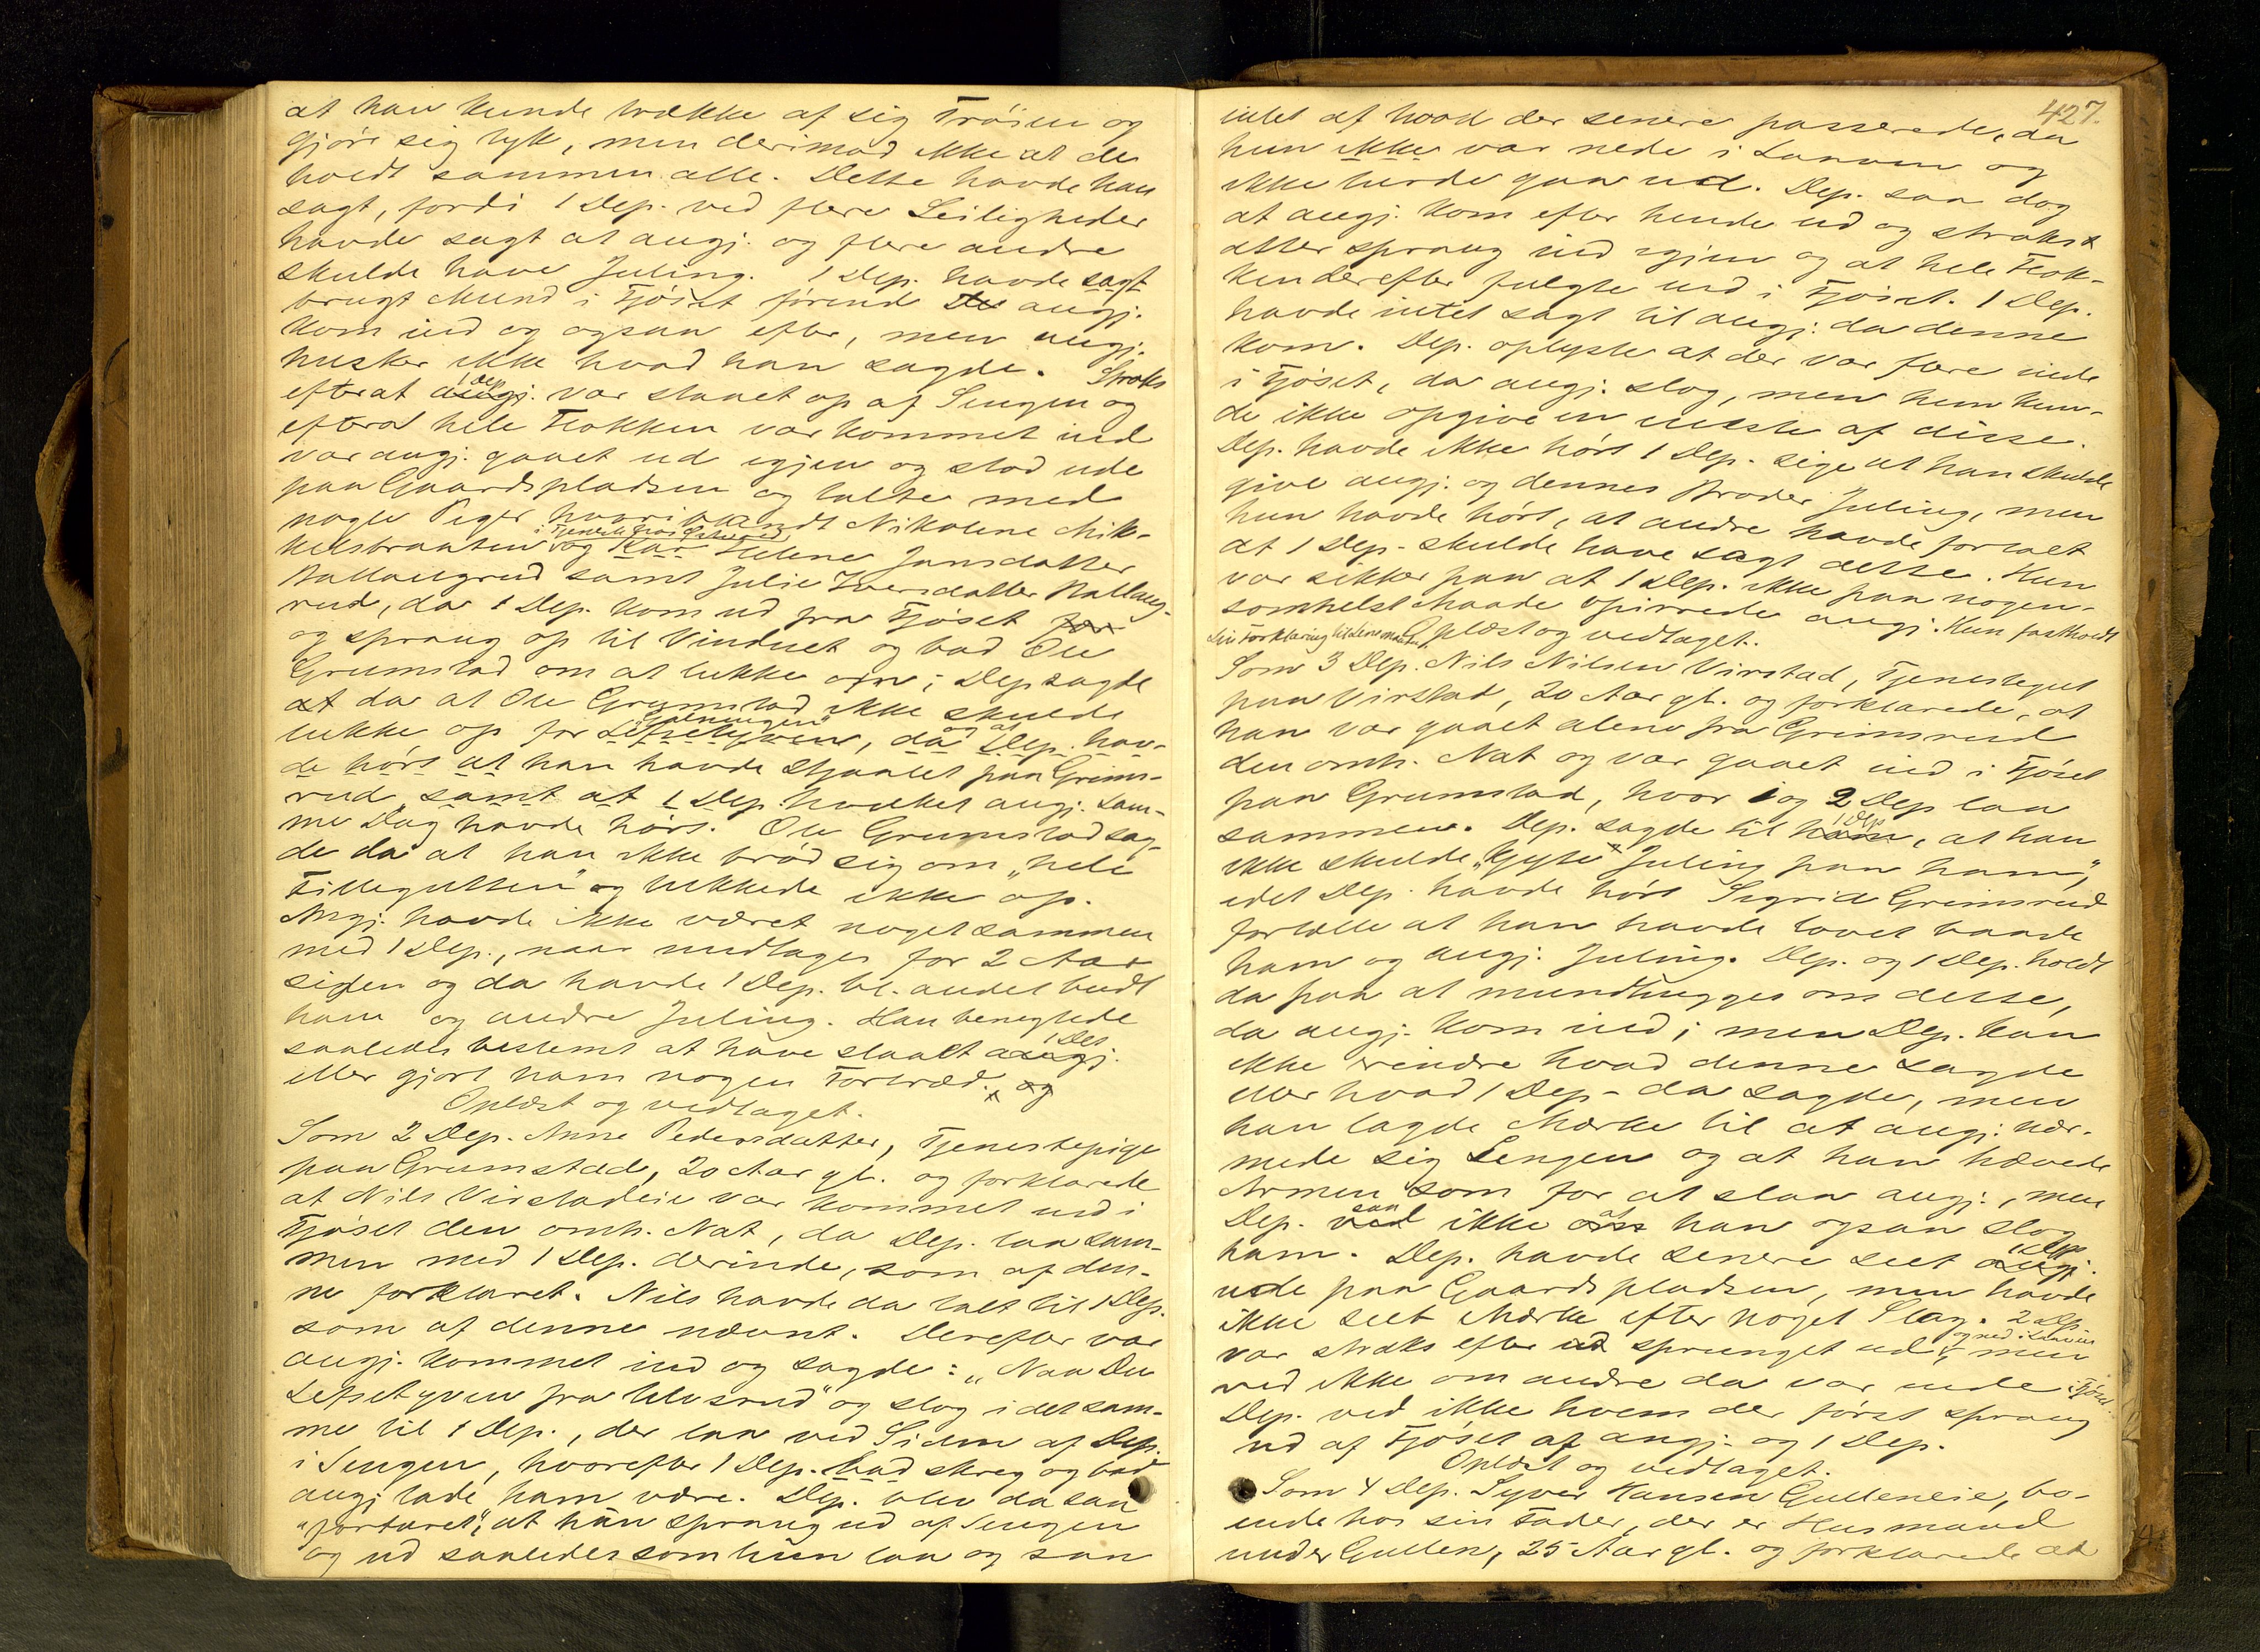 at han kunde trække af sig Trøien og
gjøre sig lyk, men derimod ikke at de
hvedt sammen alle. Dette havde han
sagt, fordi 1 Dep. ved flere Leiligheder
havde sagt at angj. og flere andre
skulde have Juling. 1 Dep. havde sagt
brugt Mund i Fjøset førend Du angj.
kom ind og ogsaa efter, men angj.
husker ikke hvad han sagde. Straks
efterat angj. 1 Dep var staaet op af Sengen og
efterat hele Flokken var kommet ind
var angj. gaaet ud igjen og stod ude
paa Gaardspladsen og talte med
nogle Piger hvoriblandt Nikoline Mik-
kelsbraaten i Tjeneste hos og Kar Helene Jansdatter
Ballangrud samt Julie Iversdatter Ballang-
rud, da 1 Dep. kom ud fra Fjøset for
og sprang op til Vinduet og bad Ole
Grumstad om at lukke op; Dep sagde
at da at Ole Grumstad ikke skulde
lukke op for Lefsetyven, da og at Dep. hav-
de hørt at han havde stjaalet paa Grims-
rud samt at 1 Dep. hvilket angj. sam-
me Dag havde hørt. Ole Grumstad sag-
de da at han ikke brød sig om "hele
Fillegutten" og lukkede ikke op.
Angj. havde ikke været noget sammen
med 1 Dep., naar undtages for 2 Aar
siden og da havde 1 Dep. bl. andet budt
ham og andre Juling. Han benegtede
saaledes bestemt at have slaaet angj. 1 Dep
eller gjort ham nogen Fortræd. og
Oplæst og vedtaget.
Som 2 Dep. Anne Pedersdatter, Tjenestepige
paa Grumstad, 20 Aar gl. og forklarede
at Nils Virstadeie var kommet ind i
Fjøset den omh. Nat, da Dep. laa sam-
men med 1 Dep. derinde, som af den-
ne forklaret. Nils havde da talt til 1 Dep.
som af denne nævnt. Derefter var
angj. kommet ind og sagde: "Naa Du
Lefsetyven fra Ulvsrud" og slog i det sam-
me til 1 Dep., der laa ved Siden af Dep.
i Sengen, hvorefter 1 Dep. bad skreg og bad
angj lade ham være. Dep. blev da saa
"forfæret", at hun sprang ud af Sengen
og ud saaledes som hun laa og saa
427.
intet af hvad der senere passerede, da
hun ikke var nede i Laaven og
ikke turde gaa ud. Dep. saa dog
at angj. kom efter hende ud og strakst
atter sprang ind igjen og at hele Flok-
ken derefter fulgte ind i Fjøset. 1 Dep.
havde intet sagt til angj. da denne
kom. Dep. oplyste at der var flere inde
i Fjøset, da angj. slog, men hun kun-
de ikke opgive en eneste af disse.
Dep. havde ikke hørt 1 Dep. sige at han skulde
give angj. og dennes Broder Juling, men
hun havde hørt, at andre havde fortalt
at 1 Dep. skulde have sagt dette. Hun
var sikker paa at 1 Dep. ikke paa nogen-
somhelst Maade opirrede angj. Hun fastholdt
sin Forklaring til Lensmanden. Oplæst og vedtaget.
Som 3 Dep. Nils Nilsen Virstad, Tjenestegut
paa Virstad, 20 Aar gl. og forklarede, at
han var gaaet alene fra Grimsrud
den omh. Nat og var gaaet ind i Fjøset
paa Grumstad, hvor 1 og 2 Dep laa
sammen. Dep. sagde til ham 1 Dep, at han
ikke skulde "kyte Juling paa ham",
idet Dep. havde hørt Sigrid Grimsrud
fortælle at han havde lovet baade
ham og angj. Juling. Dep. og 1 Dep. holdt
da paa at mundhugges om dette,
da angj. kom ind; men Dep. kan
ikke erindre hvad denne sagde
eller hvad 1 Dep. da sagde, men
han lagde Mærke til at angj. nær-
mede sig Sengen og at han hævede
Armen som for at slaa angj., men
Dep. ved saa ikke om at han ogsaa slog
ham. Dep. havde senere seet angj. 1 Dep
ude paa Gaardspladsen, men havde
ikke seet Mærke efter noget Slag. 2 Dep.
var straks efter ud sprunget ud og ned i Laaven, men
ved ikke om andre da var inde i Fjøset.
Dep. ved ikke hvem der først sprang
ud af Fjøset af angj. og 1 Dep.
Oplæst og vedtaget.
Som 4 Dep. Syver Hansen Gulleneie, bo-
ende hos sin Fader, der er Husmand
under Gullen, 25 Aar gl. og forklarede at